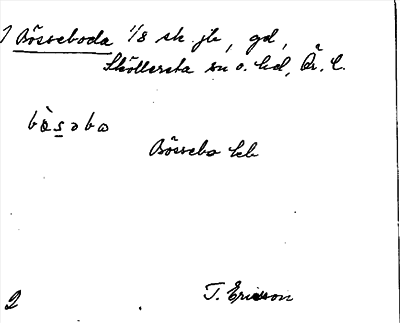 7 Bösseboda 1/8 sk. jb, gd,
Sköllersta sn o. hd, Ör. l.
bὼsəbω
Bössebo kb
2 T. Ericsson